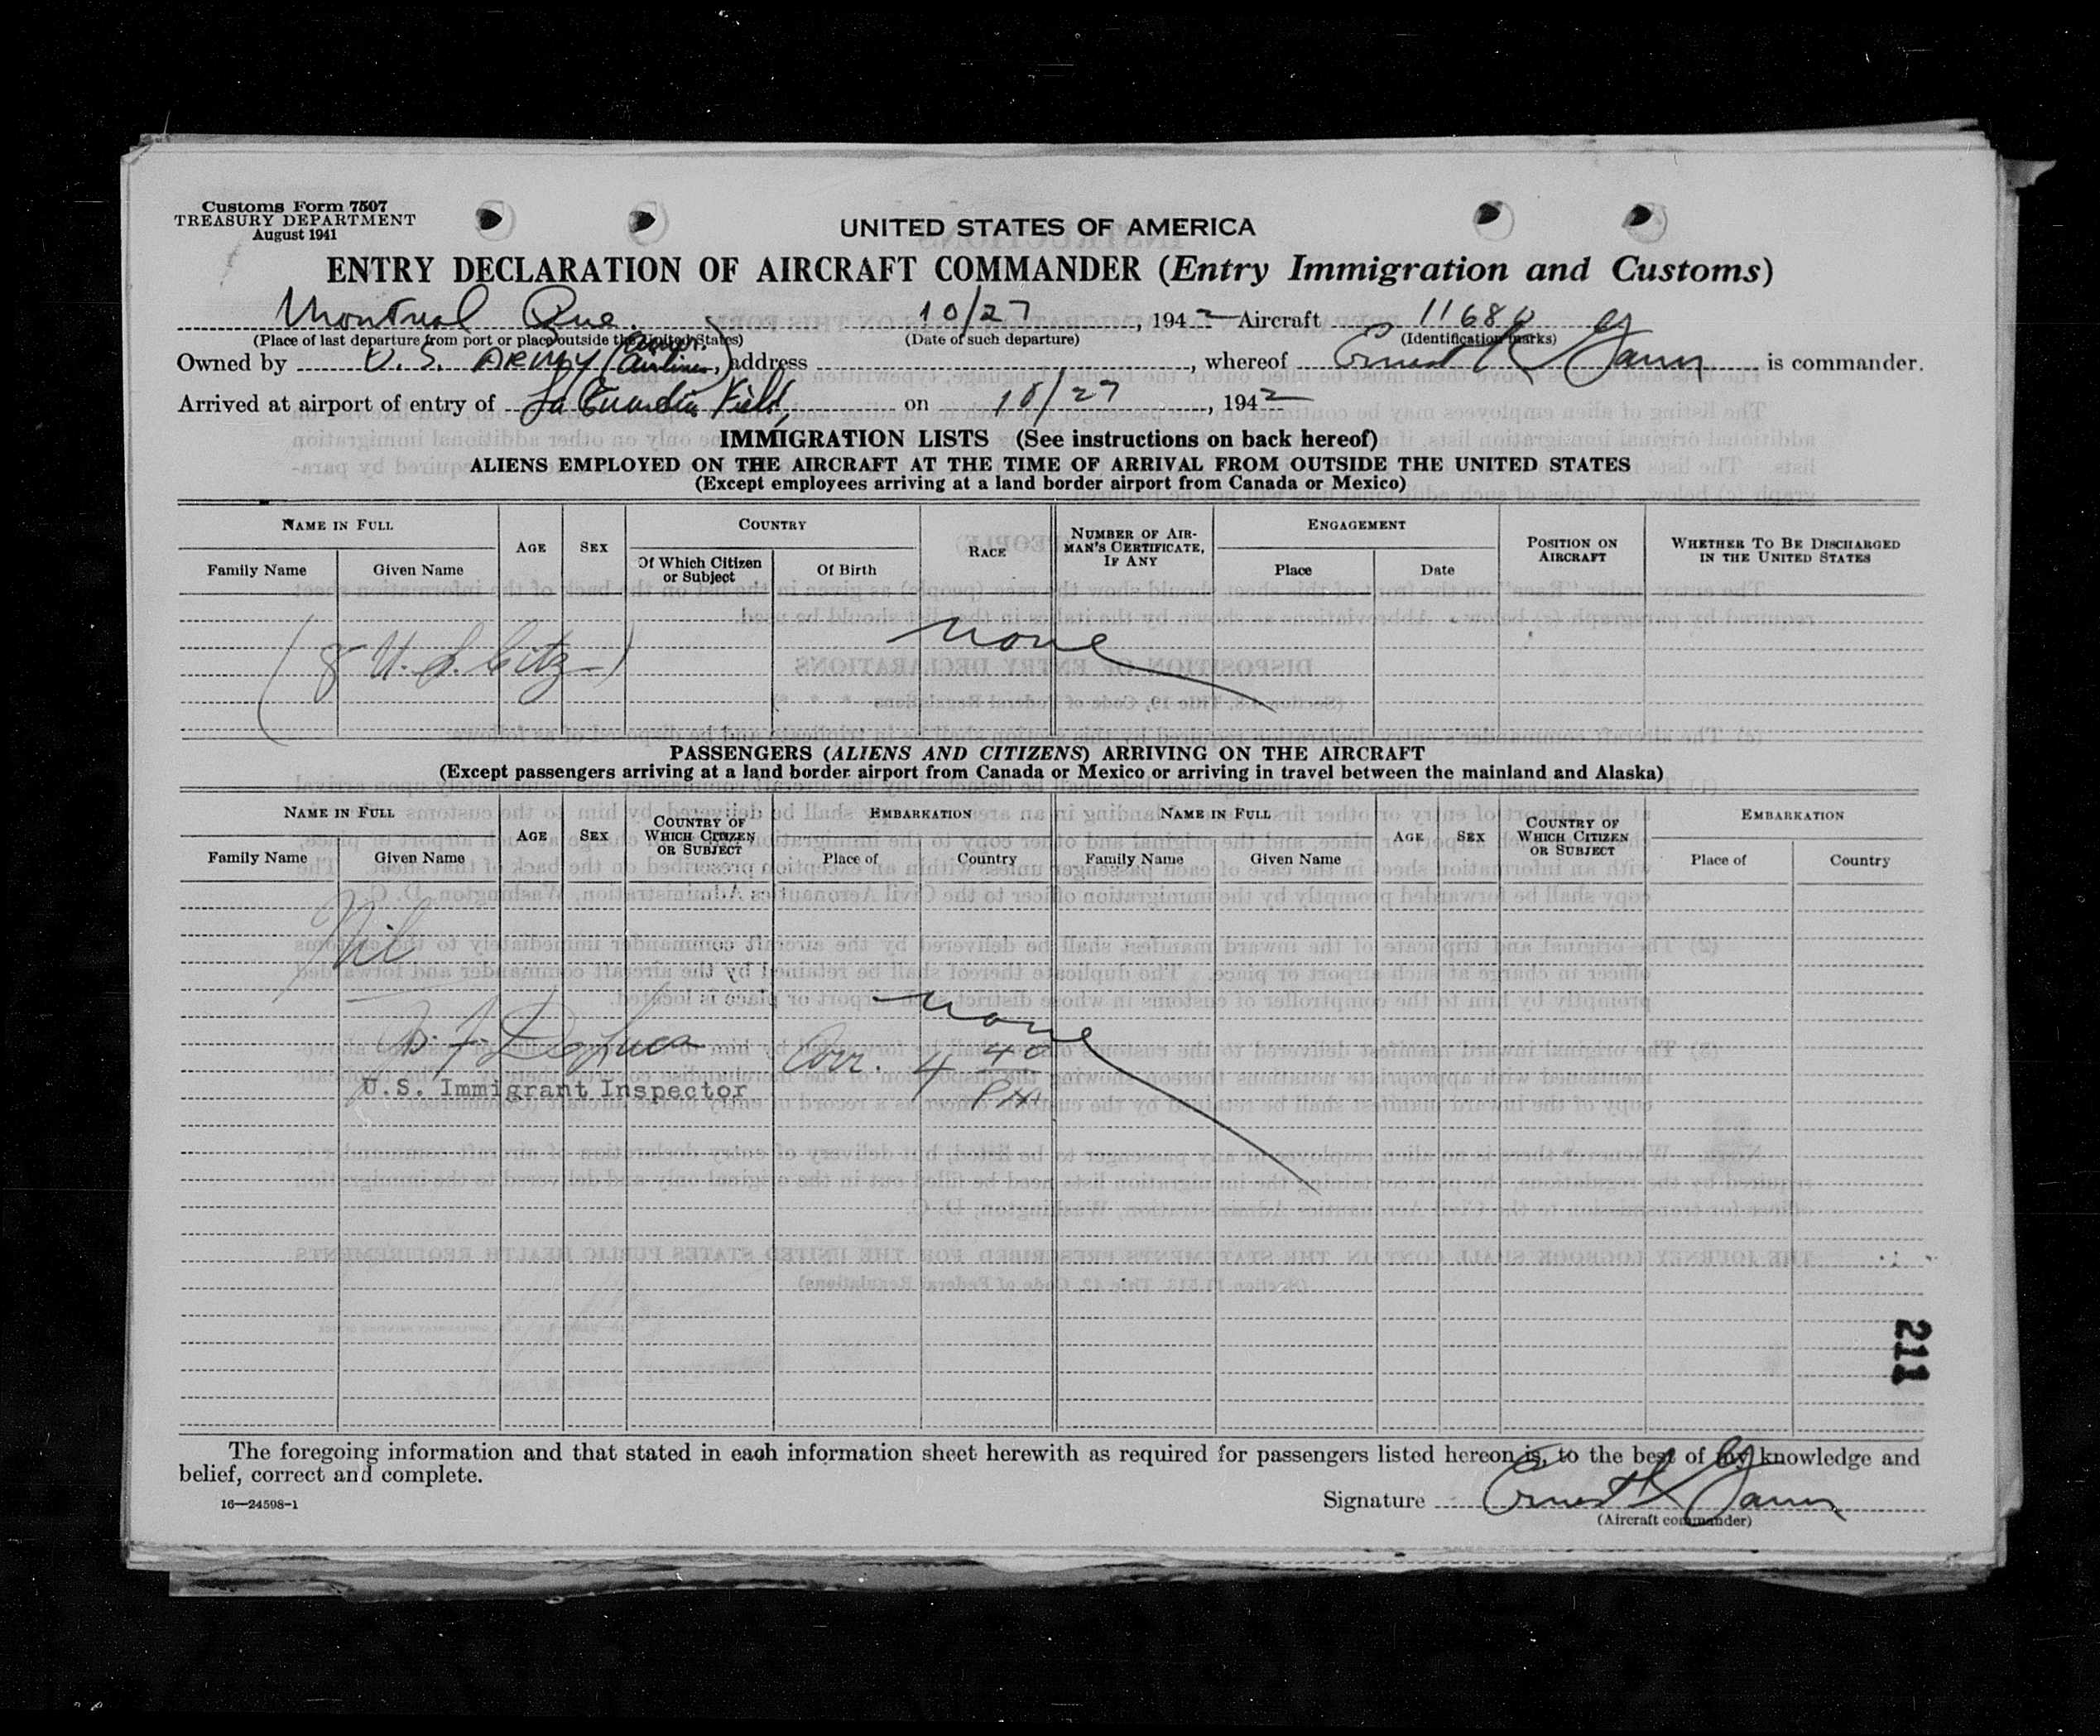 Customs Form 7507
TREASURY DEPARTMENT
August 1941
UNITED STATES OF AMERICA
ENTRY DECLARATION OF AIRCRAFT COMMANDER (Entry Immigration and Customs)
Montreal Que. 10/27, 1942 Aircraft 11680
(Place of last departure from port or place outside the United States) (Date of such departure) (Identification marks)
Owned by U.S. ARMY (Amer. Airlines) address , whereof Ernest K Gann is commander.
Arrived at airport of entry of La Guardia Field, on 10/27, 1942
IMMIGRATION LISTS (See instructions on back hereof)
ALIENS EMPLOYED ON THE AIRCRAFT AT THE TIME OF ARRIVAL FROM OUTSIDE THE UNITED STATES
(Except employees arriving at a land border airport from Canada or Mexico)
NAME IN FULL AGE SEX COUNTRY RACE NUMBER OF AIRMAN'S CERTIFICATE, IF ANY ENGAGEMENT POSITION ON AIRCRAFT WHETHER TO BE DISCHARGED IN THE UNITED STATES
Family Name Given Name Of Which Citizen or Subject Of Birth Place Date
none
(8 U.S. Citz-)
PASSENGERS (ALIENS AND CITIZENS) ARRIVING ON THE AIRCRAFT
(Except passengers arriving at a land border airport from Canada or Mexico or arriving in travel between the mainland and Alaska)
NAME IN FULL AGE SEX COUNTRY OF WHICH CITIZEN OR SUBJECT EMBARKATION NAME IN FULL AGE SEX COUNTRY OF WHICH CITIZEN OR SUBJECT EMBARKATION
Family Name Given Name Place of Country Family Name Given Name Place of Country
Nil
none
Arr. 4 40 PM
U.S. Immigrant Inspector
211
The foregoing information and that stated in each information sheet herewith as required for passengers listed hereon is, to the best of my knowledge and
belief, correct and complete.
16—24598-1
Signature Ernest K Gann
(Aircraft commander)